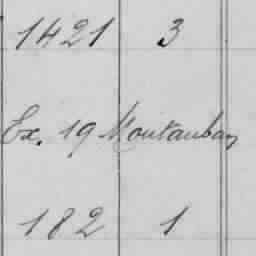 1421 3
Ex. 19 Montauban
182 1